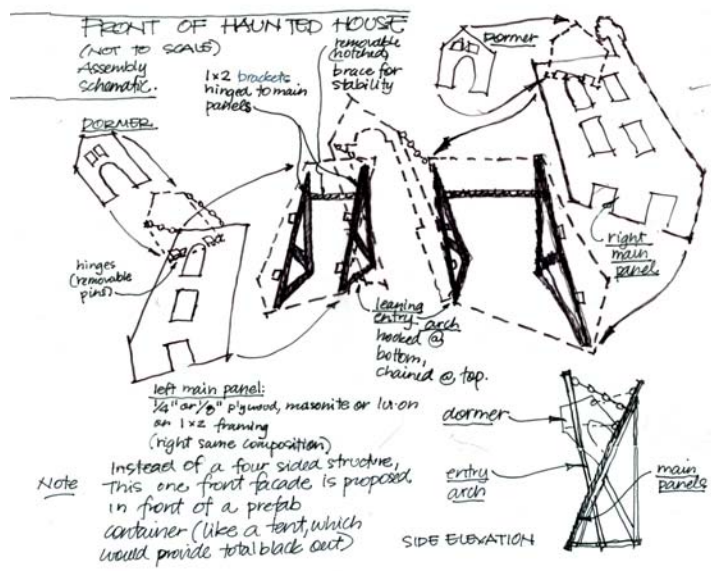 FRONT OF HAUNTED HOUSE
(NOT TO SCALE)
Assembly
schematic.
1x2 brackets
hinged to main
panels
removable
(notched)
brace for
stability
DORMER
DORMER
hinges
(removable
pins)
right
main
panel
leaning
entry arch
hooked @
bottom,
chained @ top.
left main panel:
1/4" or 1/8" plywood, masonite or lu-on
on 1x2 framing
(right same composition)
Note
Instead of a four sided structure,
This one front facade is proposed
in front of a prefab
container (like a tent, which
would provide total black out)
dormer
entry
arch
main
panels
SIDE ELEVATION